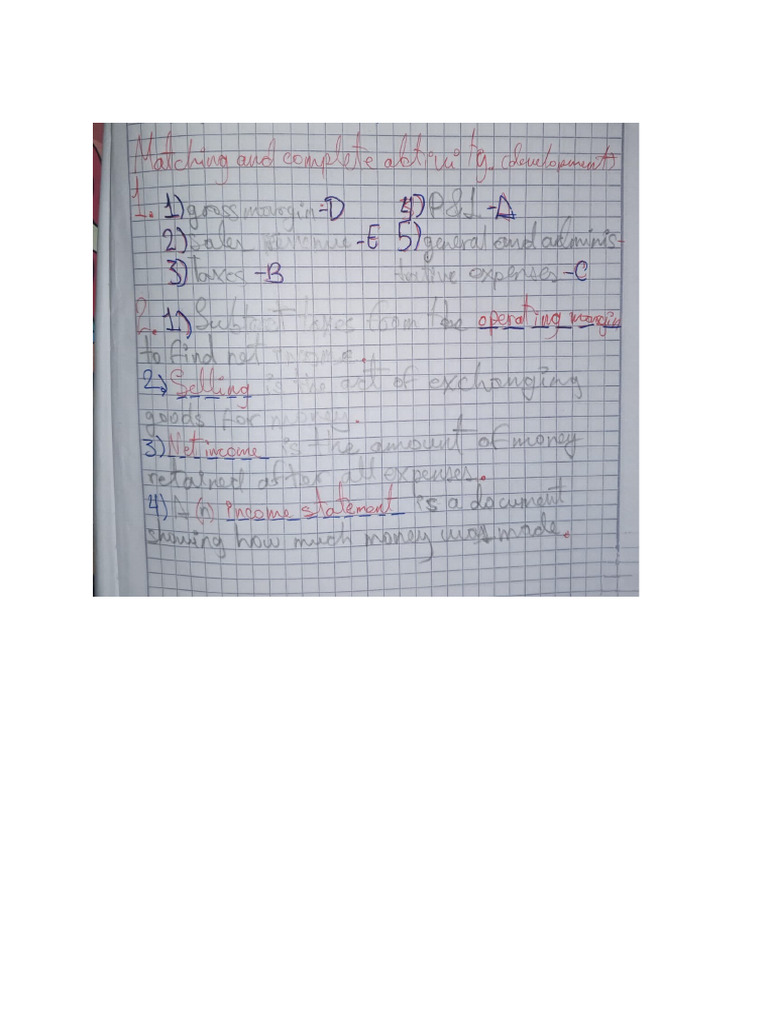 Matching and complete activity. (development)
1. 1) gross margin -D 4) P&L -A
2) sales revenue -E 5) general and adminis-
3) taxes -B trative expenses -C
2. 1) Subtract taxes from the operating margin
to find net income.
2) Selling is the act of exchanging
goods for money.
3) Net income is the amount of money
retained after all expenses.
4) A (n) income statement is a document
showing how much money was made.